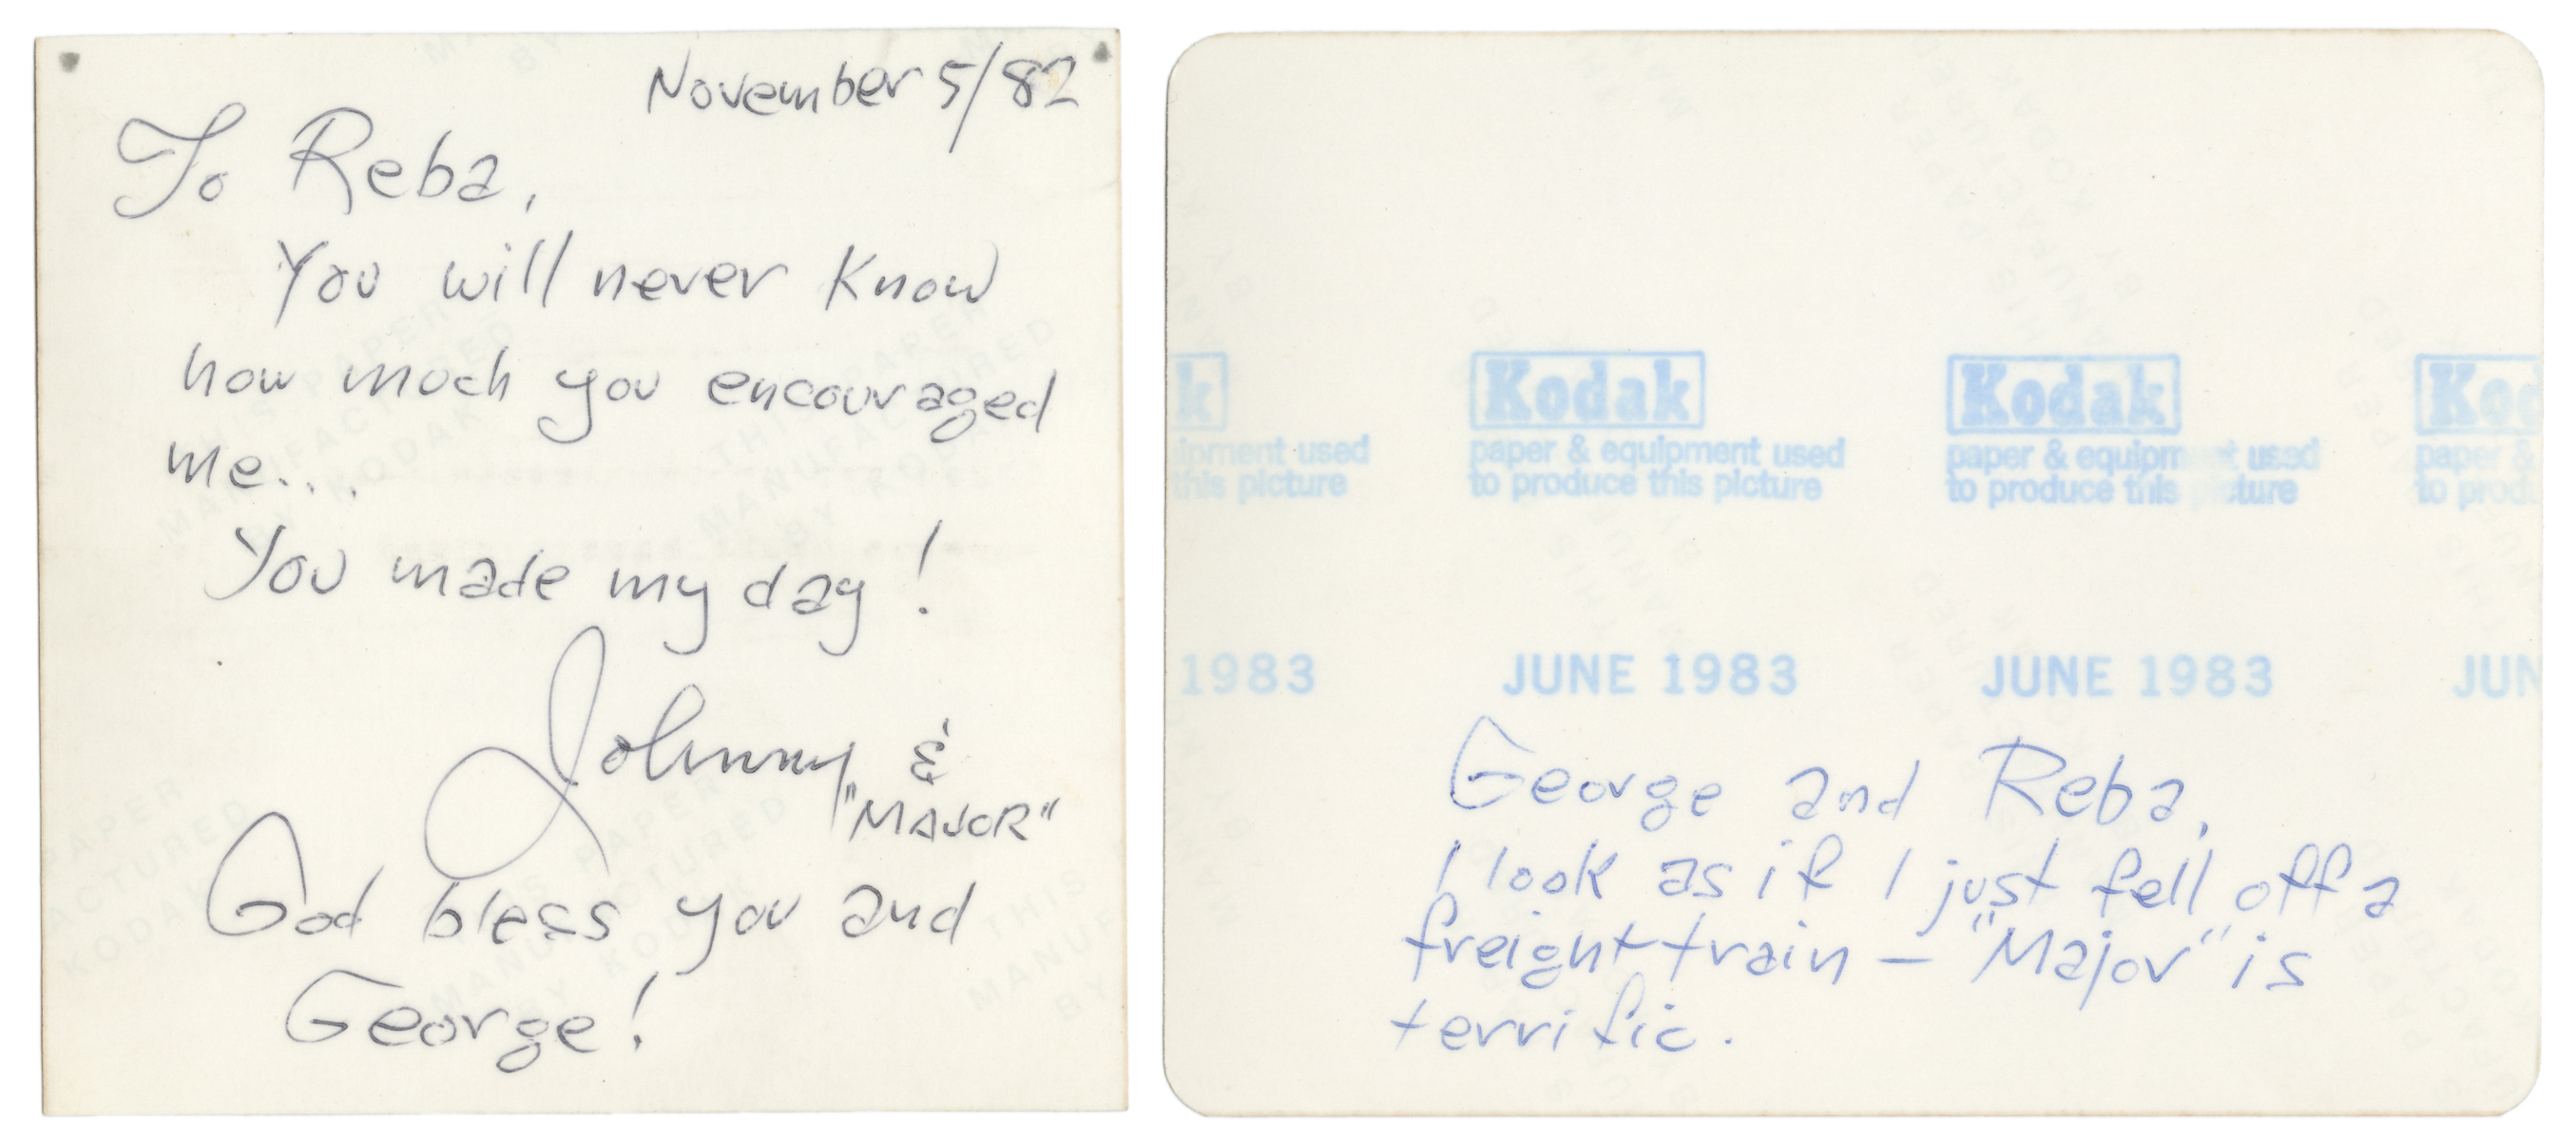 November 5/82
To Reba,
You will never know
how much you encouraged
me...
You made my day!
Johnny &
"MAJOR"
God bless you and
George!
THIS PAPER
MANUFACTURED
BY KODAK
THIS PAPER
MANUFACTURED
BY KODAK
k
ipment used
this picture
Kodak
paper & equipment used
to produce this picture
Kodak
paper & equipment used
to produce this picture
Kod
paper &
to prod
1983
JUNE 1983
JUNE 1983
JUN
George and Reba,
I look as if I just fell off a
freight train — "Major" is
terrific.